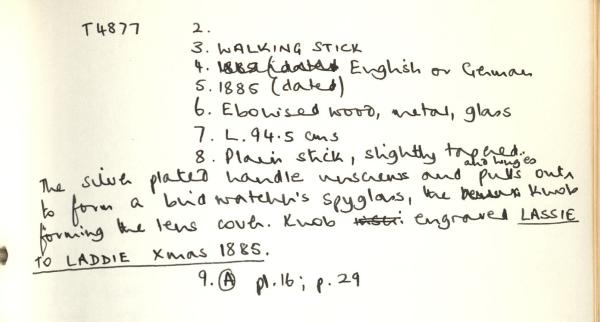 T4877 2.
3. WALKING STICK
4. English or German
5. 1885 (dated)
6. Ebonised wood, metal, glass
7. L. 94.5 cms
8. Plain stick, slightly tapered.
The silver plated handle unscrews and pulls out and hinges
to form a birdwatcher's spyglass, the knob
forming the lens cover. Knob engraved LASSIE
TO LADDIE Xmas 1885.
9. A pl.16; p. 29